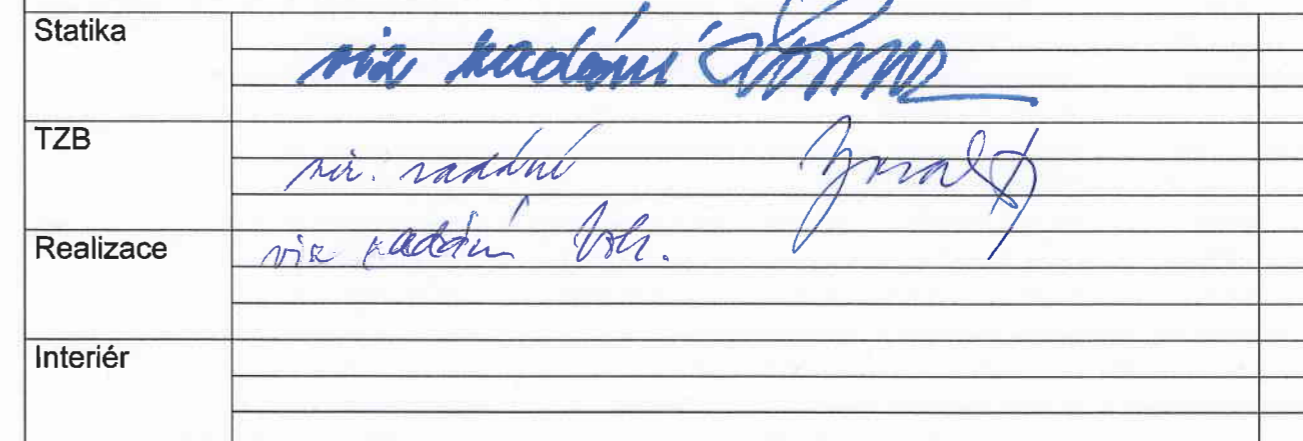 Statika
viz zadání
TZB
viz. zadání
Realizace
viz zadání
Interiér